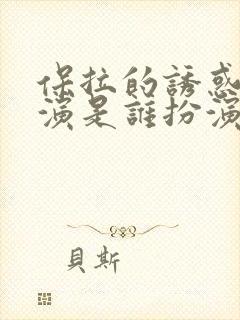 保拉的誘惑
演是誰扮演
貝斯